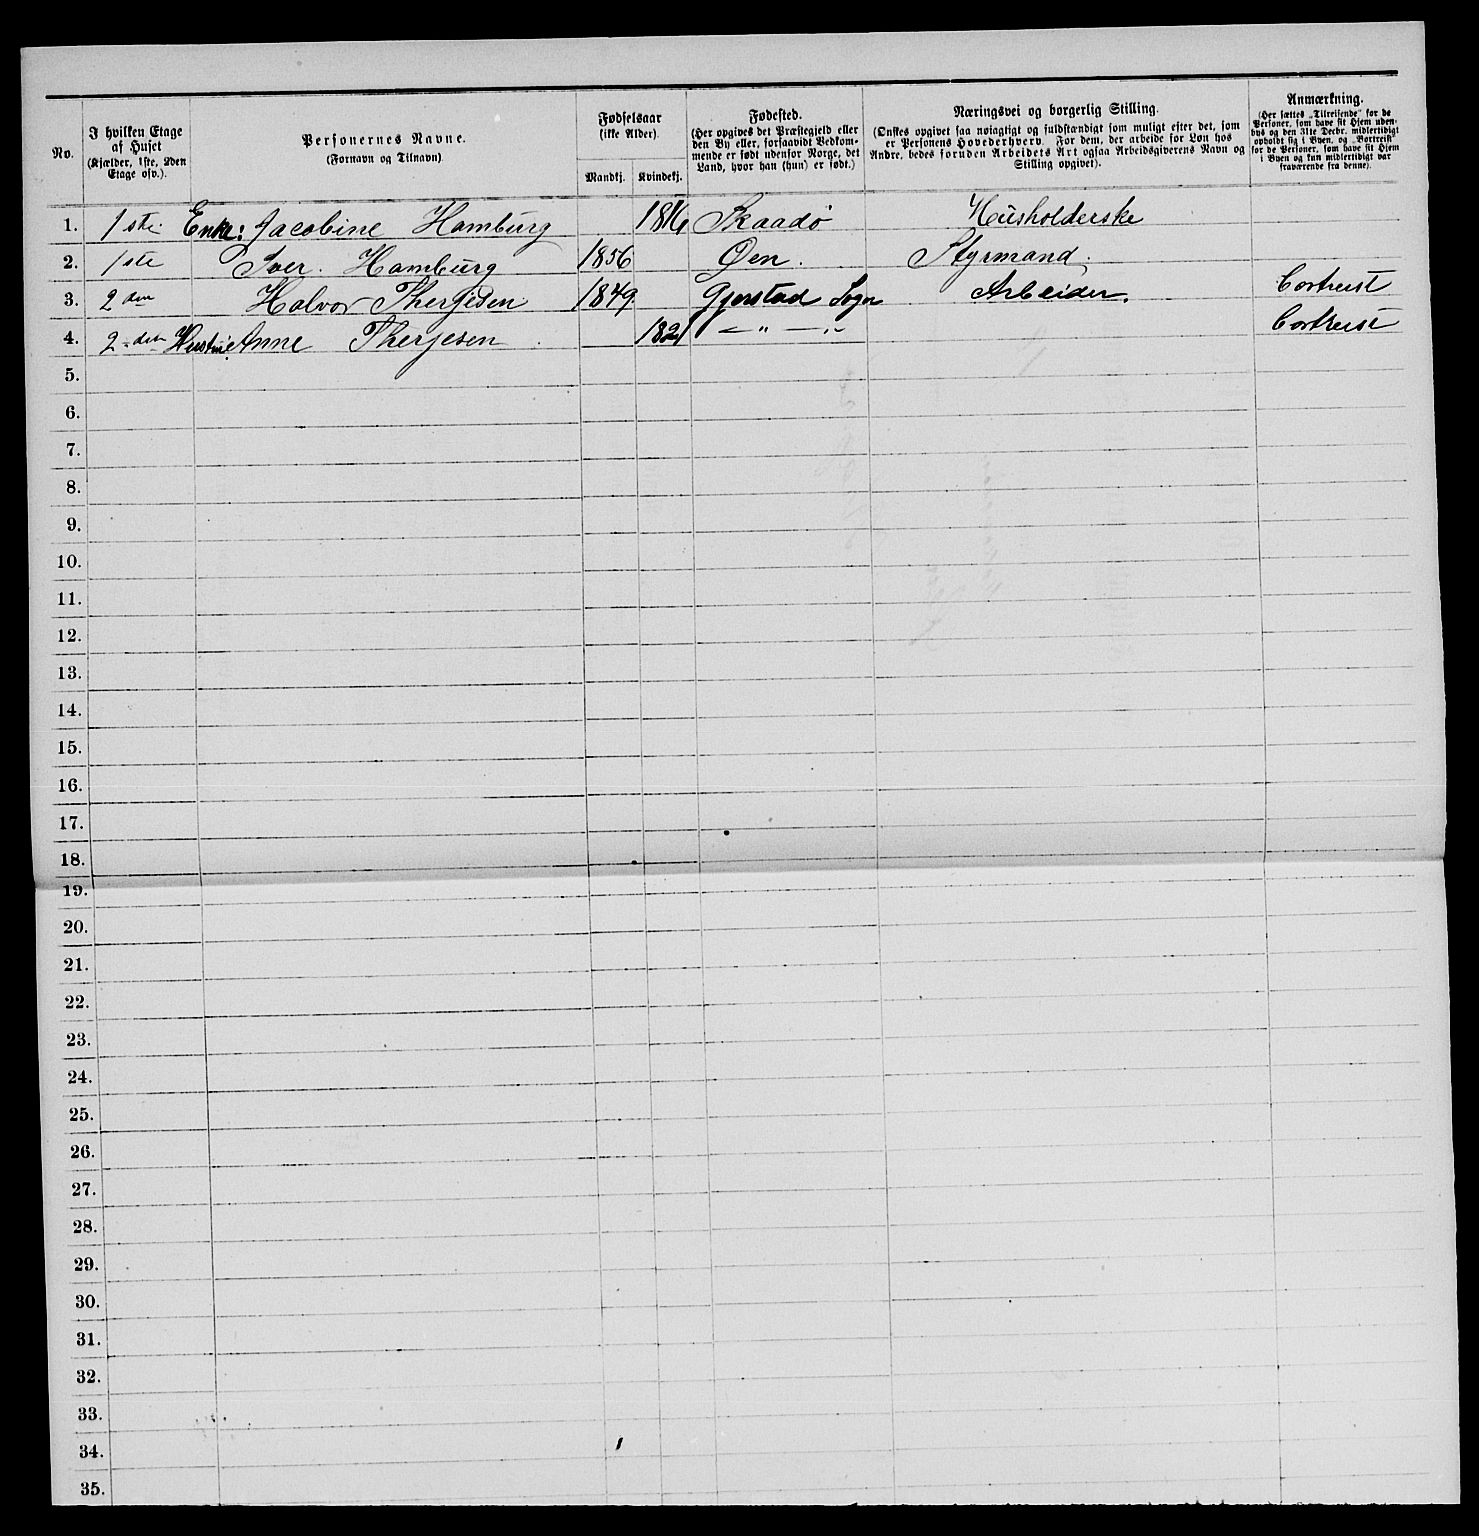 No.
I hvilken Etage af Huset (Kjælder, 1ste, 2den Etage osv.).
Personernes Navne. (Fornavn og Tilnavn)
Fødselsaar (ikke Alder).
Mandkj.
Kvindekj.
Fødested. (Her opgives det Præstegjeld eller den By eller, forsaavidt Vedkommende er født udenfor Norge, det Land, hvor han (hun) er født.)
Næringsvei og borgerlig Stilling. (Ønskes opgivet saa nøiagtigt og fuldstændigt som muligt efter det, som er Personens Hovederhverv. For dem, der arbeide for Løn hos Andre, bedes foruden Arbeidets Art ogsaa Arbeidsgiverens Navn og Stilling opgivet).
Anmærkning. (Her sættes „Tilreisende" for de Personer, som have sit Hjem udenbys og den 31te Decbr. midlertidigt opholdt sig i Byen, og „Bortreist" for de Personer, som have sit Hjem i Byen og kun midlertidigt var fraværende fra denne).
1. 1ste Enke: Jacobine Hamburg 1816 Skaadø Husholderske
2. 1ste Iver Hamburg 1856 Øen. Styrmand.
3. 2den Halvor Therjesen 1849 Gjerstad Sogn Arbeider. bortreist
4. 2den Hustru Anne Therjesen 1821 — " — " bortreist
5.
6.
7.
8.
9.
10.
11.
12.
13.
14.
15.
16.
17.
18.
19.
20.
21.
22.
23.
24.
25.
26.
27.
28.
29.
30.
31.
32.
33.
34.
35.